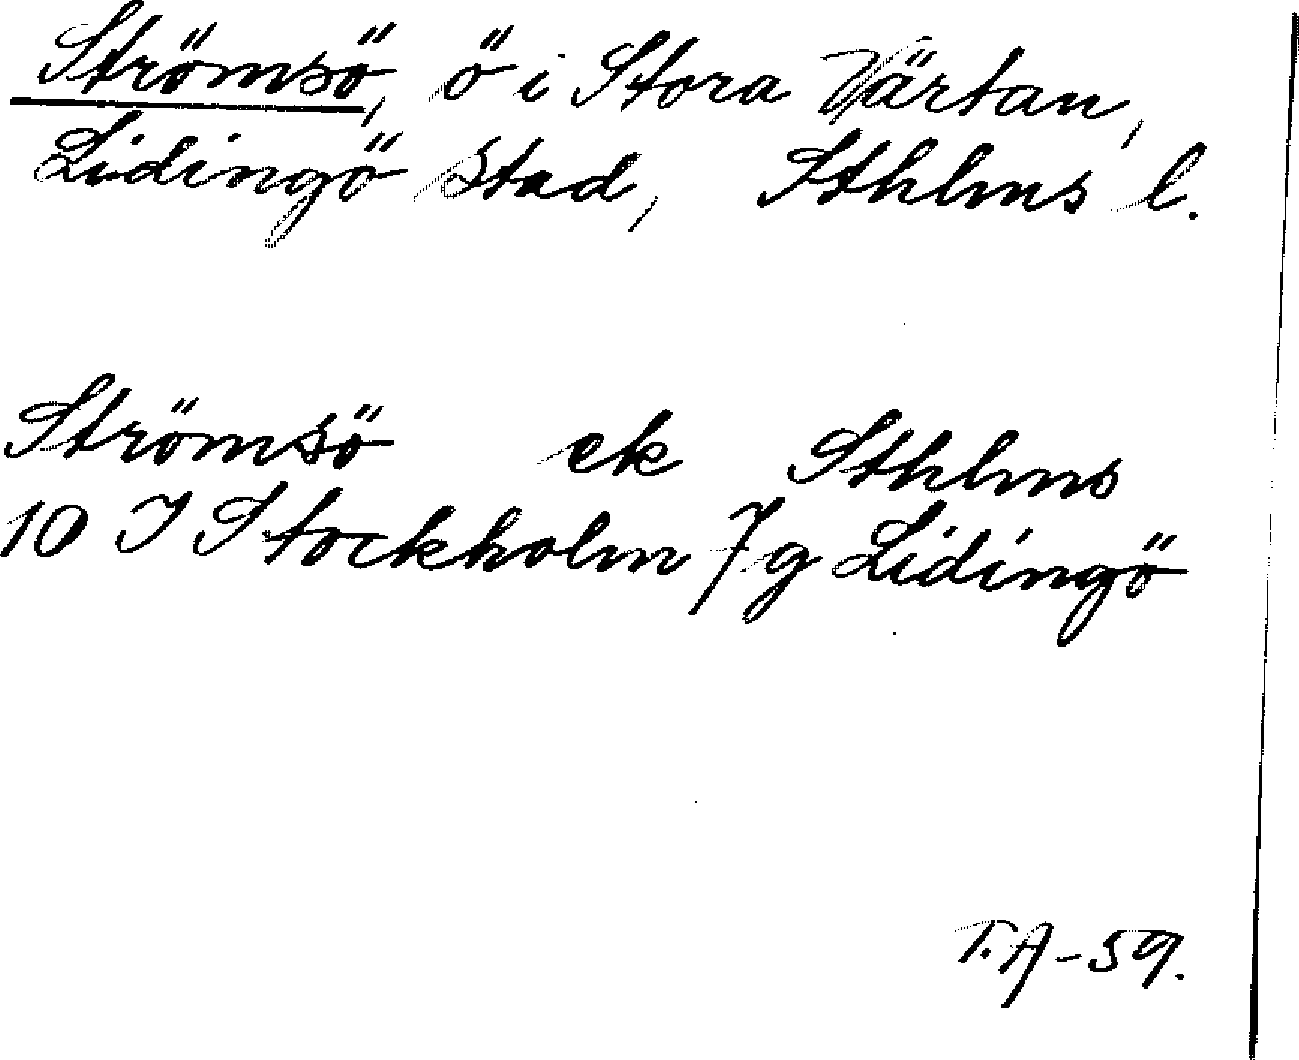 Strömsö, ö i Stora Värtan,
Lidingö stad, Sthlms l.
Strömsö ek Sthlms
10 I Stockholm 7g Lidingö
T.A-59.